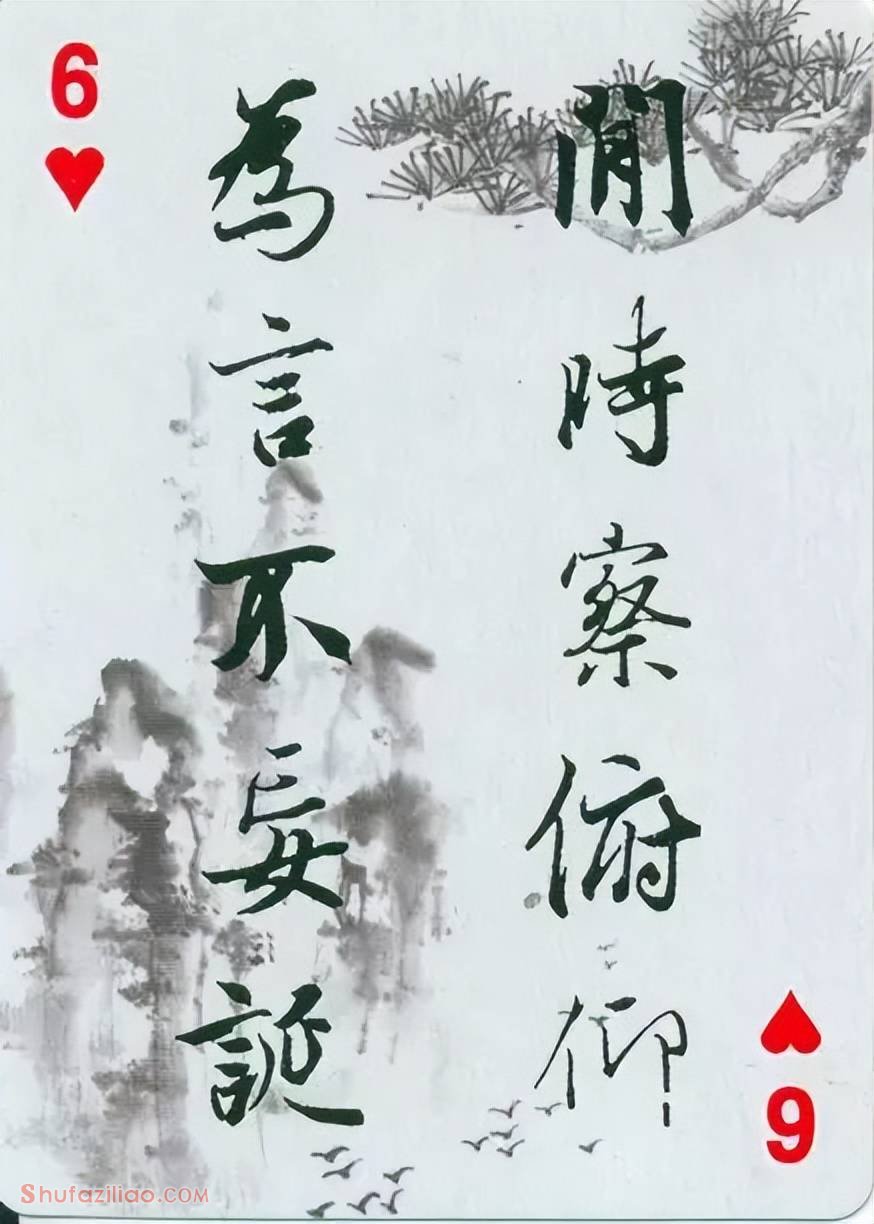 6
閒時察俯仰
為言不妄誕
6
Shufaziliao.com